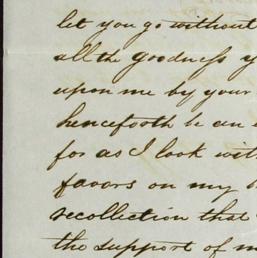 let you go without
all the Goodness
upon me by your
henceforth be an
for as I look with
favors on my
recollection that
the support of